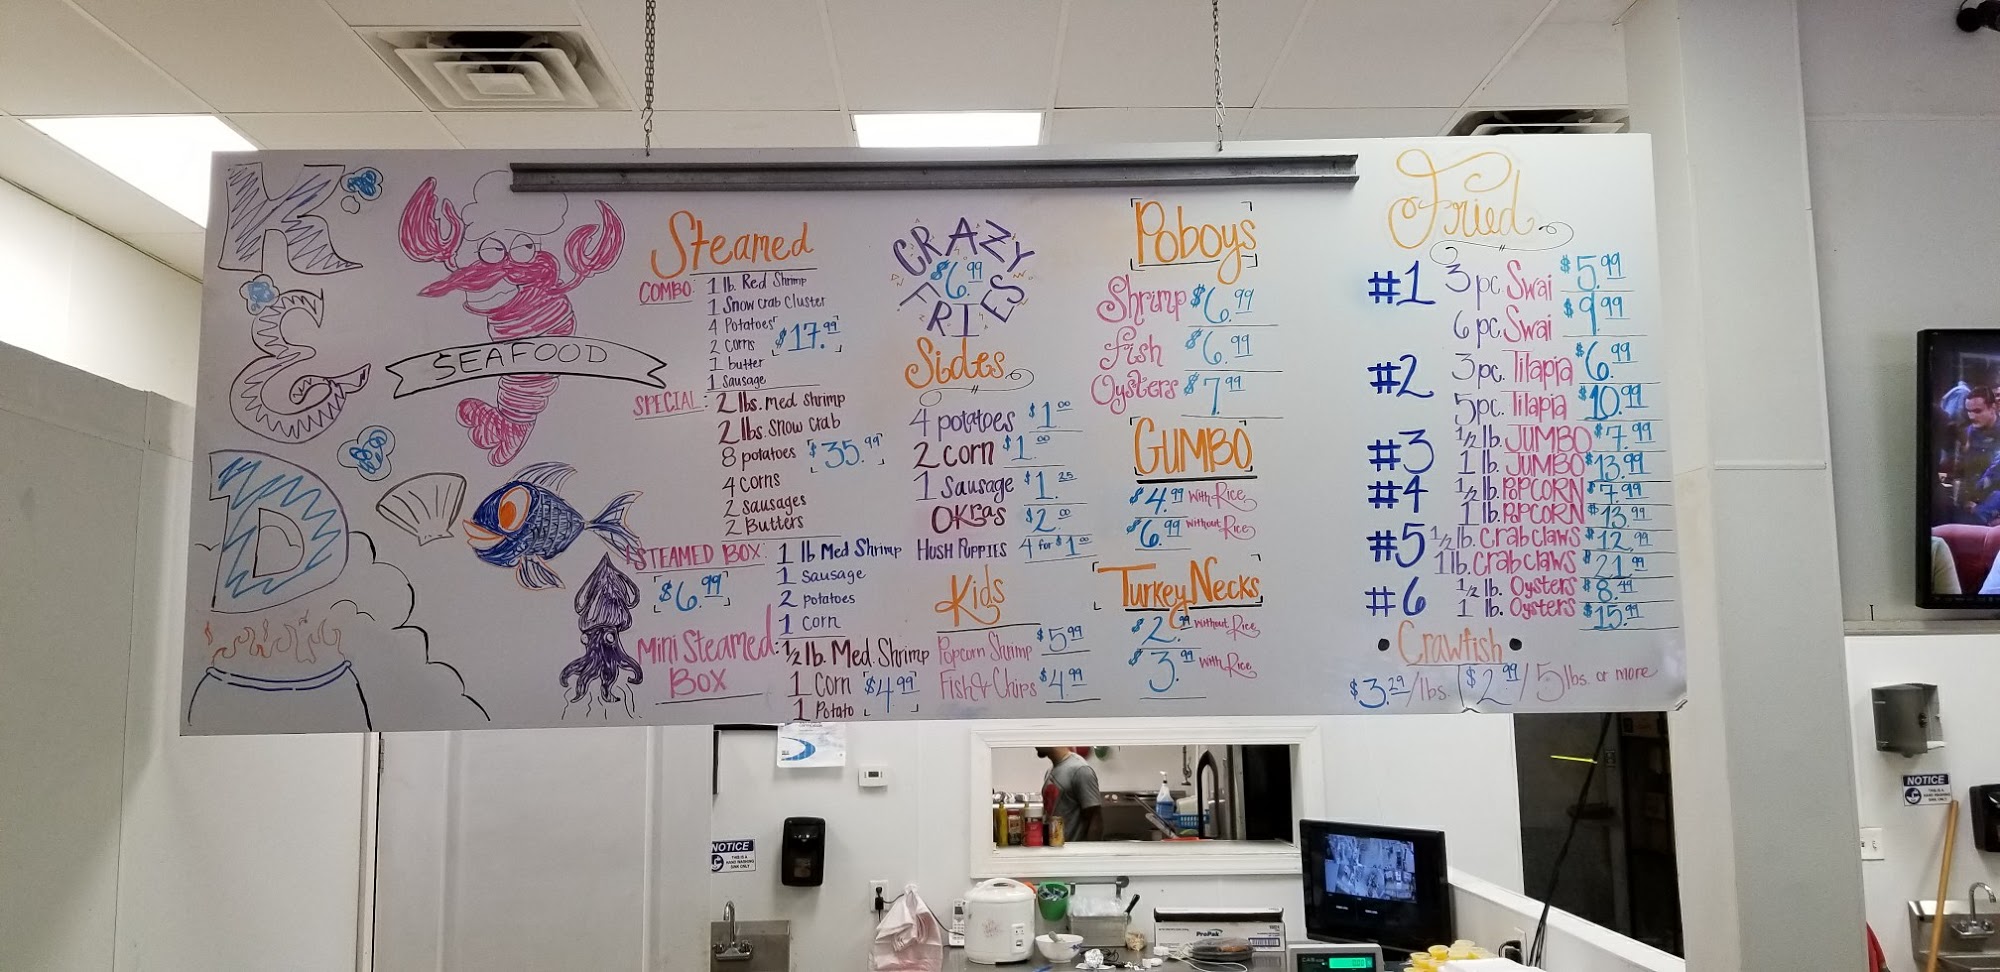 K
&
D
SEAFOOD
Steamed
COMBO: 1 lb. Red Shrimp
1 Snow crab cluster
4 Potatoes
2 corns $17.99
1 butter
1 Sausage
SPECIAL: 2 lbs. med shrimp
2 lbs. snow crab
8 potatoes $35.99
4 corns
2 sausages
2 Butters
STEAMED BOX: 1 lb Med Shrimp
$6.99
1 sausage
2 potatoes
1 corn
Mini Steamed Box: 1/2 lb. Med. Shrimp
1 Corn $4.99
1 Potato
CRAZY
$6.99
FRIES
Sides
4 potatoes $1.00
2 corn $1.00
1 Sausage $1.25
OKras $2.00
HUSH PUPPIES 4 for $1.00
Kids
Popcorn Shrimp $5.99
Fish & Chips $4.99
Poboys
Shrimp $6.99
fish $6.99
Oysters $7.99
GUMBO
$4.99 with Rice
$6.99 without Rice
Turkey Necks
$2.99 without Rice
$3.99 with Rice
Fried
#1 3 pc Swai $5.99
6 pc. Swai $9.99
#2 3 pc. Tilapia $6.99
5 pc. Tilapia $10.99
#3 1/2 lb. JUMBO $7.99
1 lb. JUMBO $13.99
#4 1/2 lb. POPCORN $7.99
1 lb. POPCORN $13.99
#5 1/2 lb. Crab claws $12.99
1 lb. Crab claws $21.99
#6 1/2 lb. Oysters $8.49
1 lb. Oysters $15.99
Crawfish
$3.29/lbs. $2.99/5 lbs. or more
NOTICE
THIS IS A
HAND WASHING
SINK ONLY
ProPak
NOTICE
THIS IS A
HAND WASHING
SINK ONLY